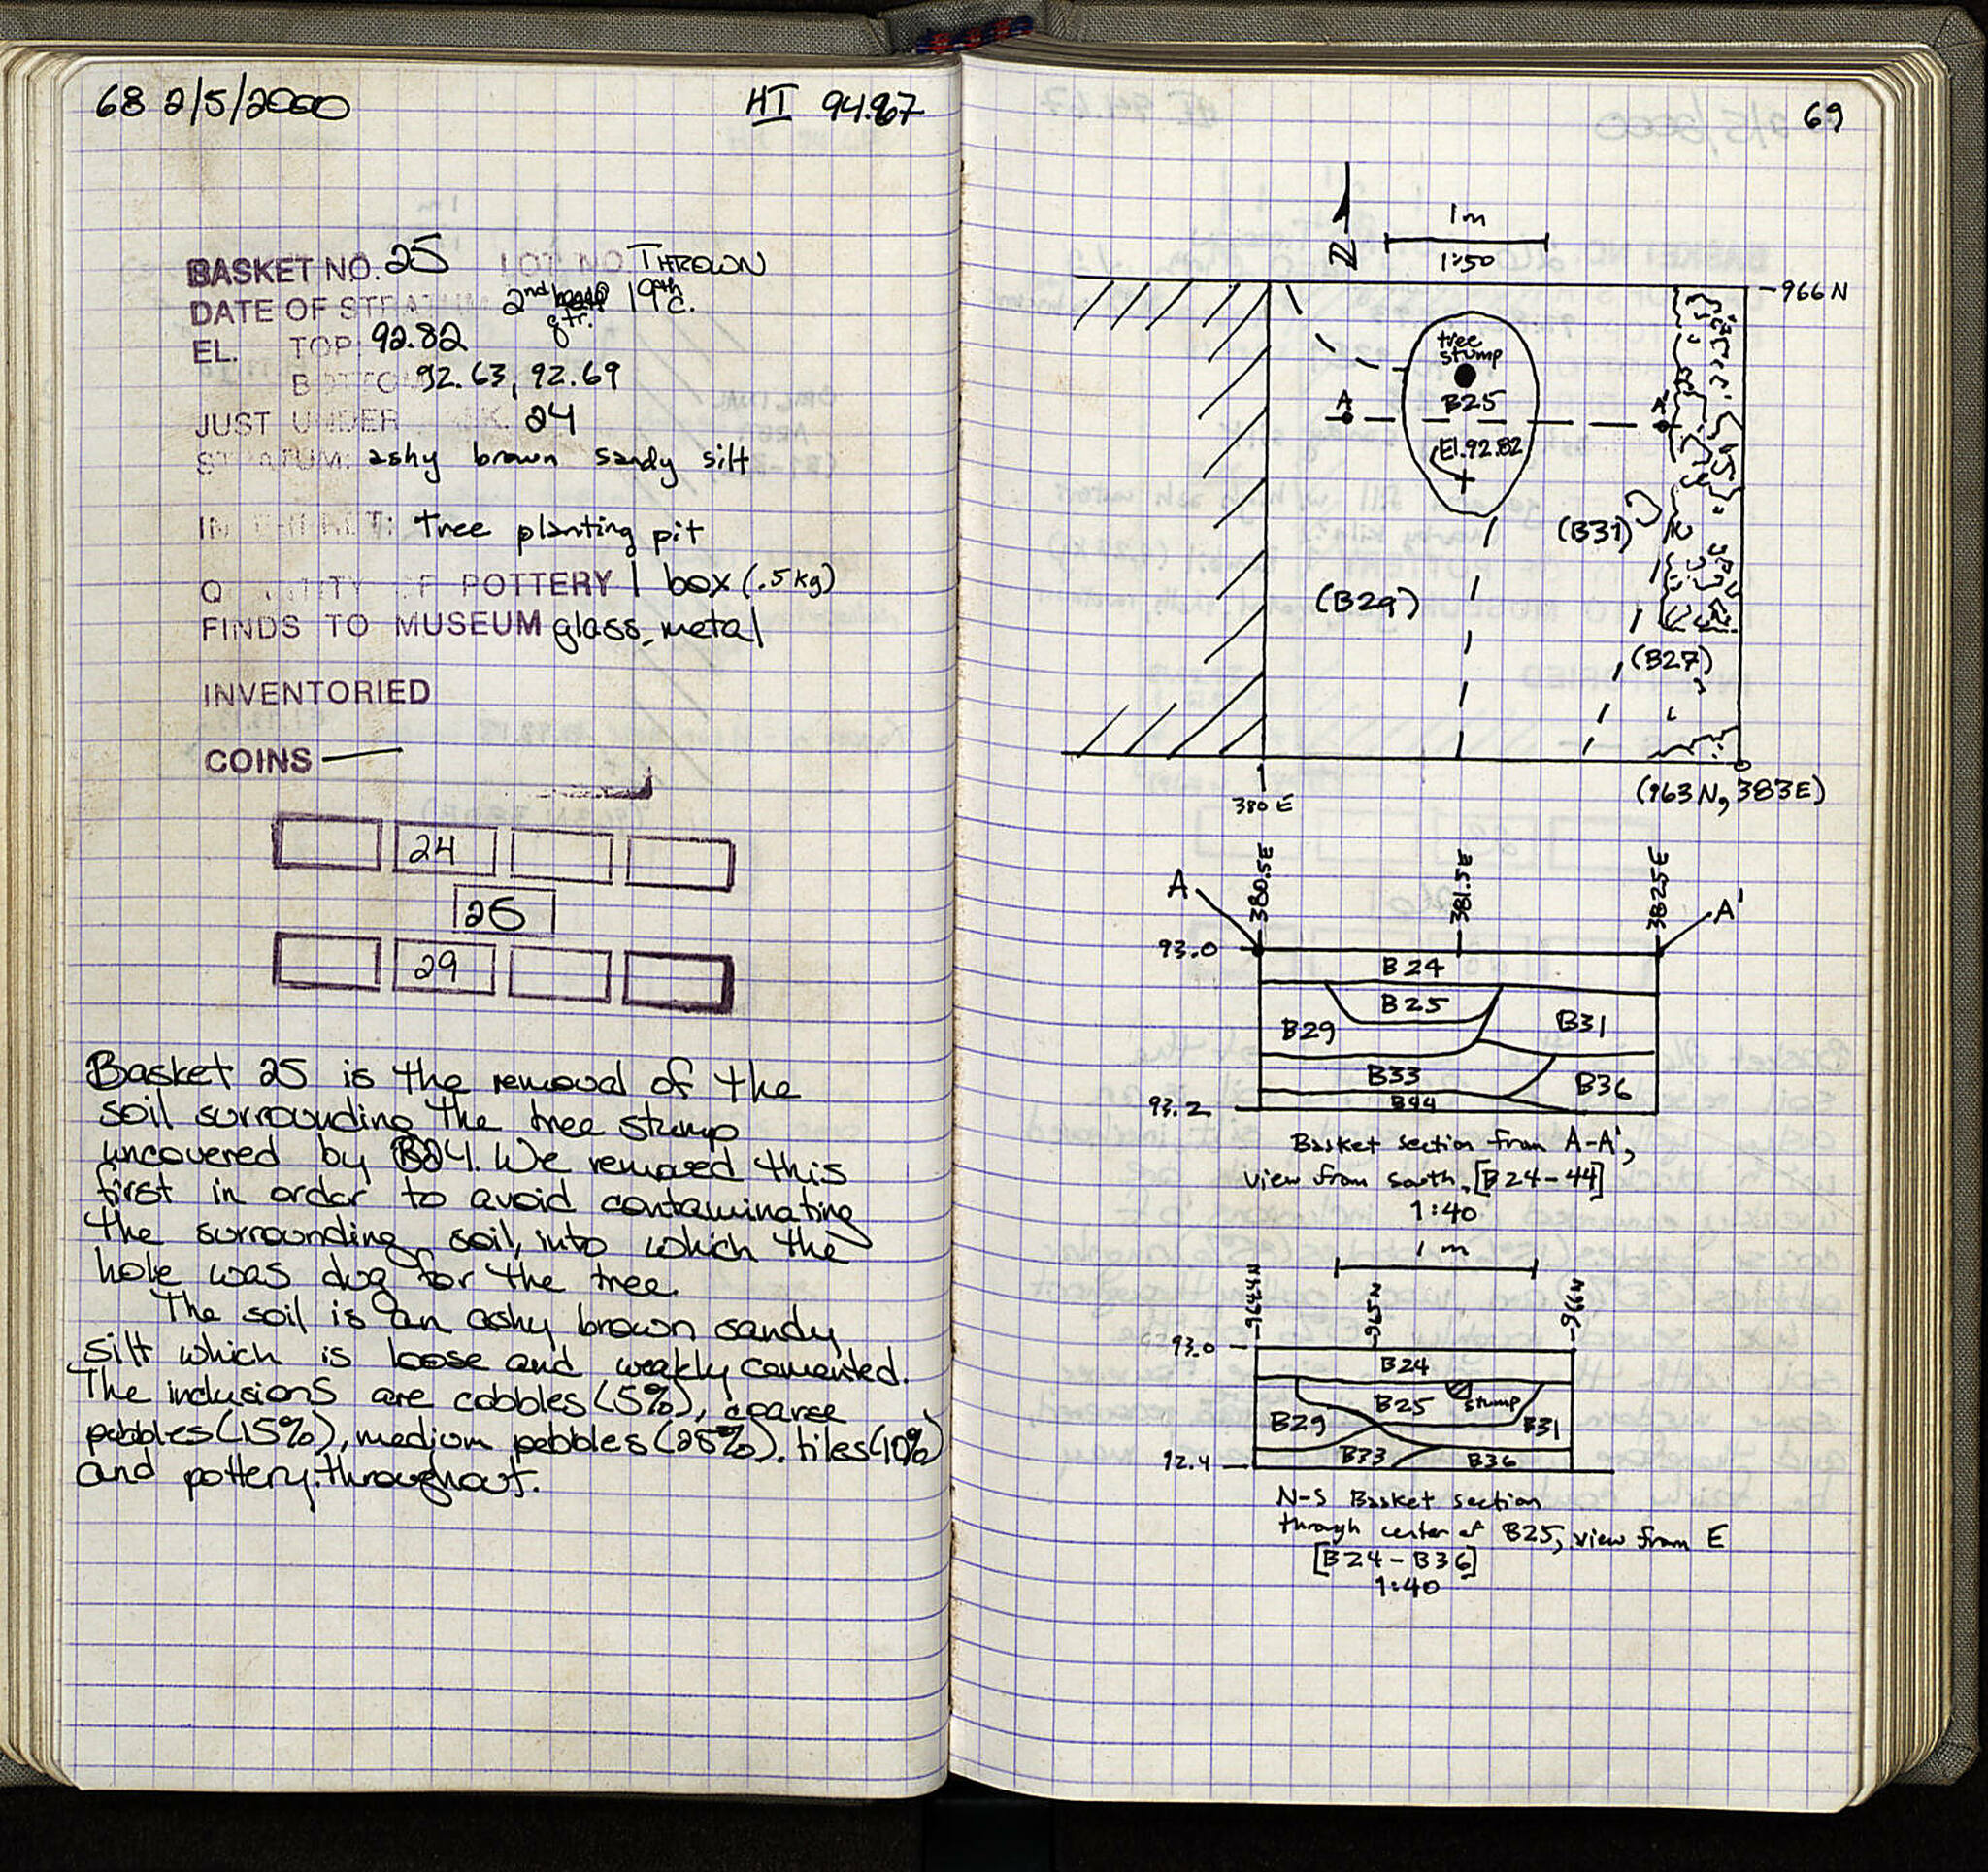 68 2/5/2000
HI 94.87
BASKET NO. 25 LOT NO. THROWN
DATE OF STRATUM 2nd qtr. 19th c.
EL. TOP 92.82
BOTTOM 92.63, 92.69
JUST UNDER BSK. 24
STRATUM: ashy brown sandy silt
tree planting pit
QUANTITY OF POTTERY 1 box (.5 kg)
FINDS TO MUSEUM glass, metal
INVENTORIED
COINS —
24
25
29
Basket 25 is the removal of the
soil surrounding the tree stump
uncovered by B24. We removed this
first in order to avoid contaminating
the surrounding soil, into which the
hole was dug for the tree.
The soil is an ashy brown sandy
silt which is loose and weakly cemented.
The inclusions are cobbles (5%), coarse
pebbles (15%), medium pebbles (25%). tiles (10%)
and pottery throughout.
69
N
1m
1:50
-966 N
tree
stump
B25
A A'
El. 92.82
(B31)
(B29)
(B27)
380 E
(963 N, 383 E)
A 380.5E 381.5E 382.5E A'
93.0
B24
B25
B29 B31
B33 B36
93.2 B44
Basket section from A-A',
view from south. [B24-44]
1:40
1 m
964.4N 965N 966N
93.0
B24
B25 stump
B29 B31
92.4 B33 B36
N-S Basket section
through center of B25, view from E
[B24-B36]
1:40